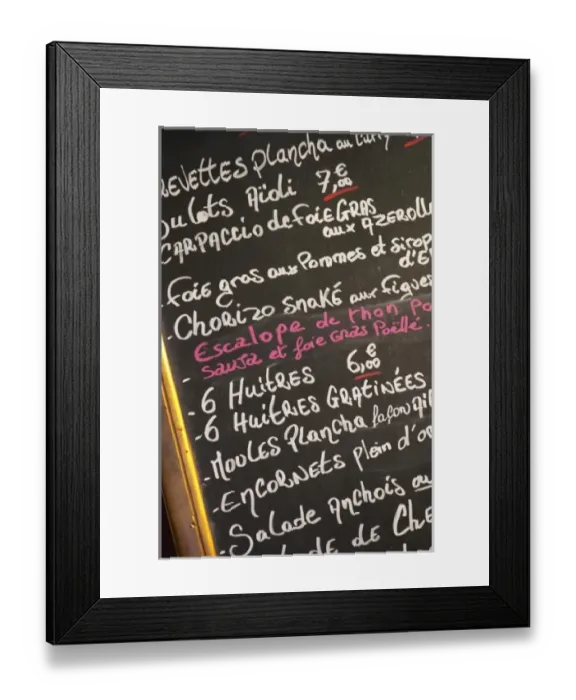 REVETTES Plancha au Curry
oulots Aïoli 7,00€
CARPACCIO de FOIE GRAS
aux AZEROLL
- foie gras aux Pommes et sirop
d'E
- CHORIZO SNAKÉ aux figues
Escalope de thon Po
sauja et foie gras Poëllé.
- 6 HUITRES 6,00€
- 6 HUITRES GRATINÉES
- MOULES Plancha façon Ai
- ENCORNETS plein d'o
- Salade Anchois ou
de de CHE